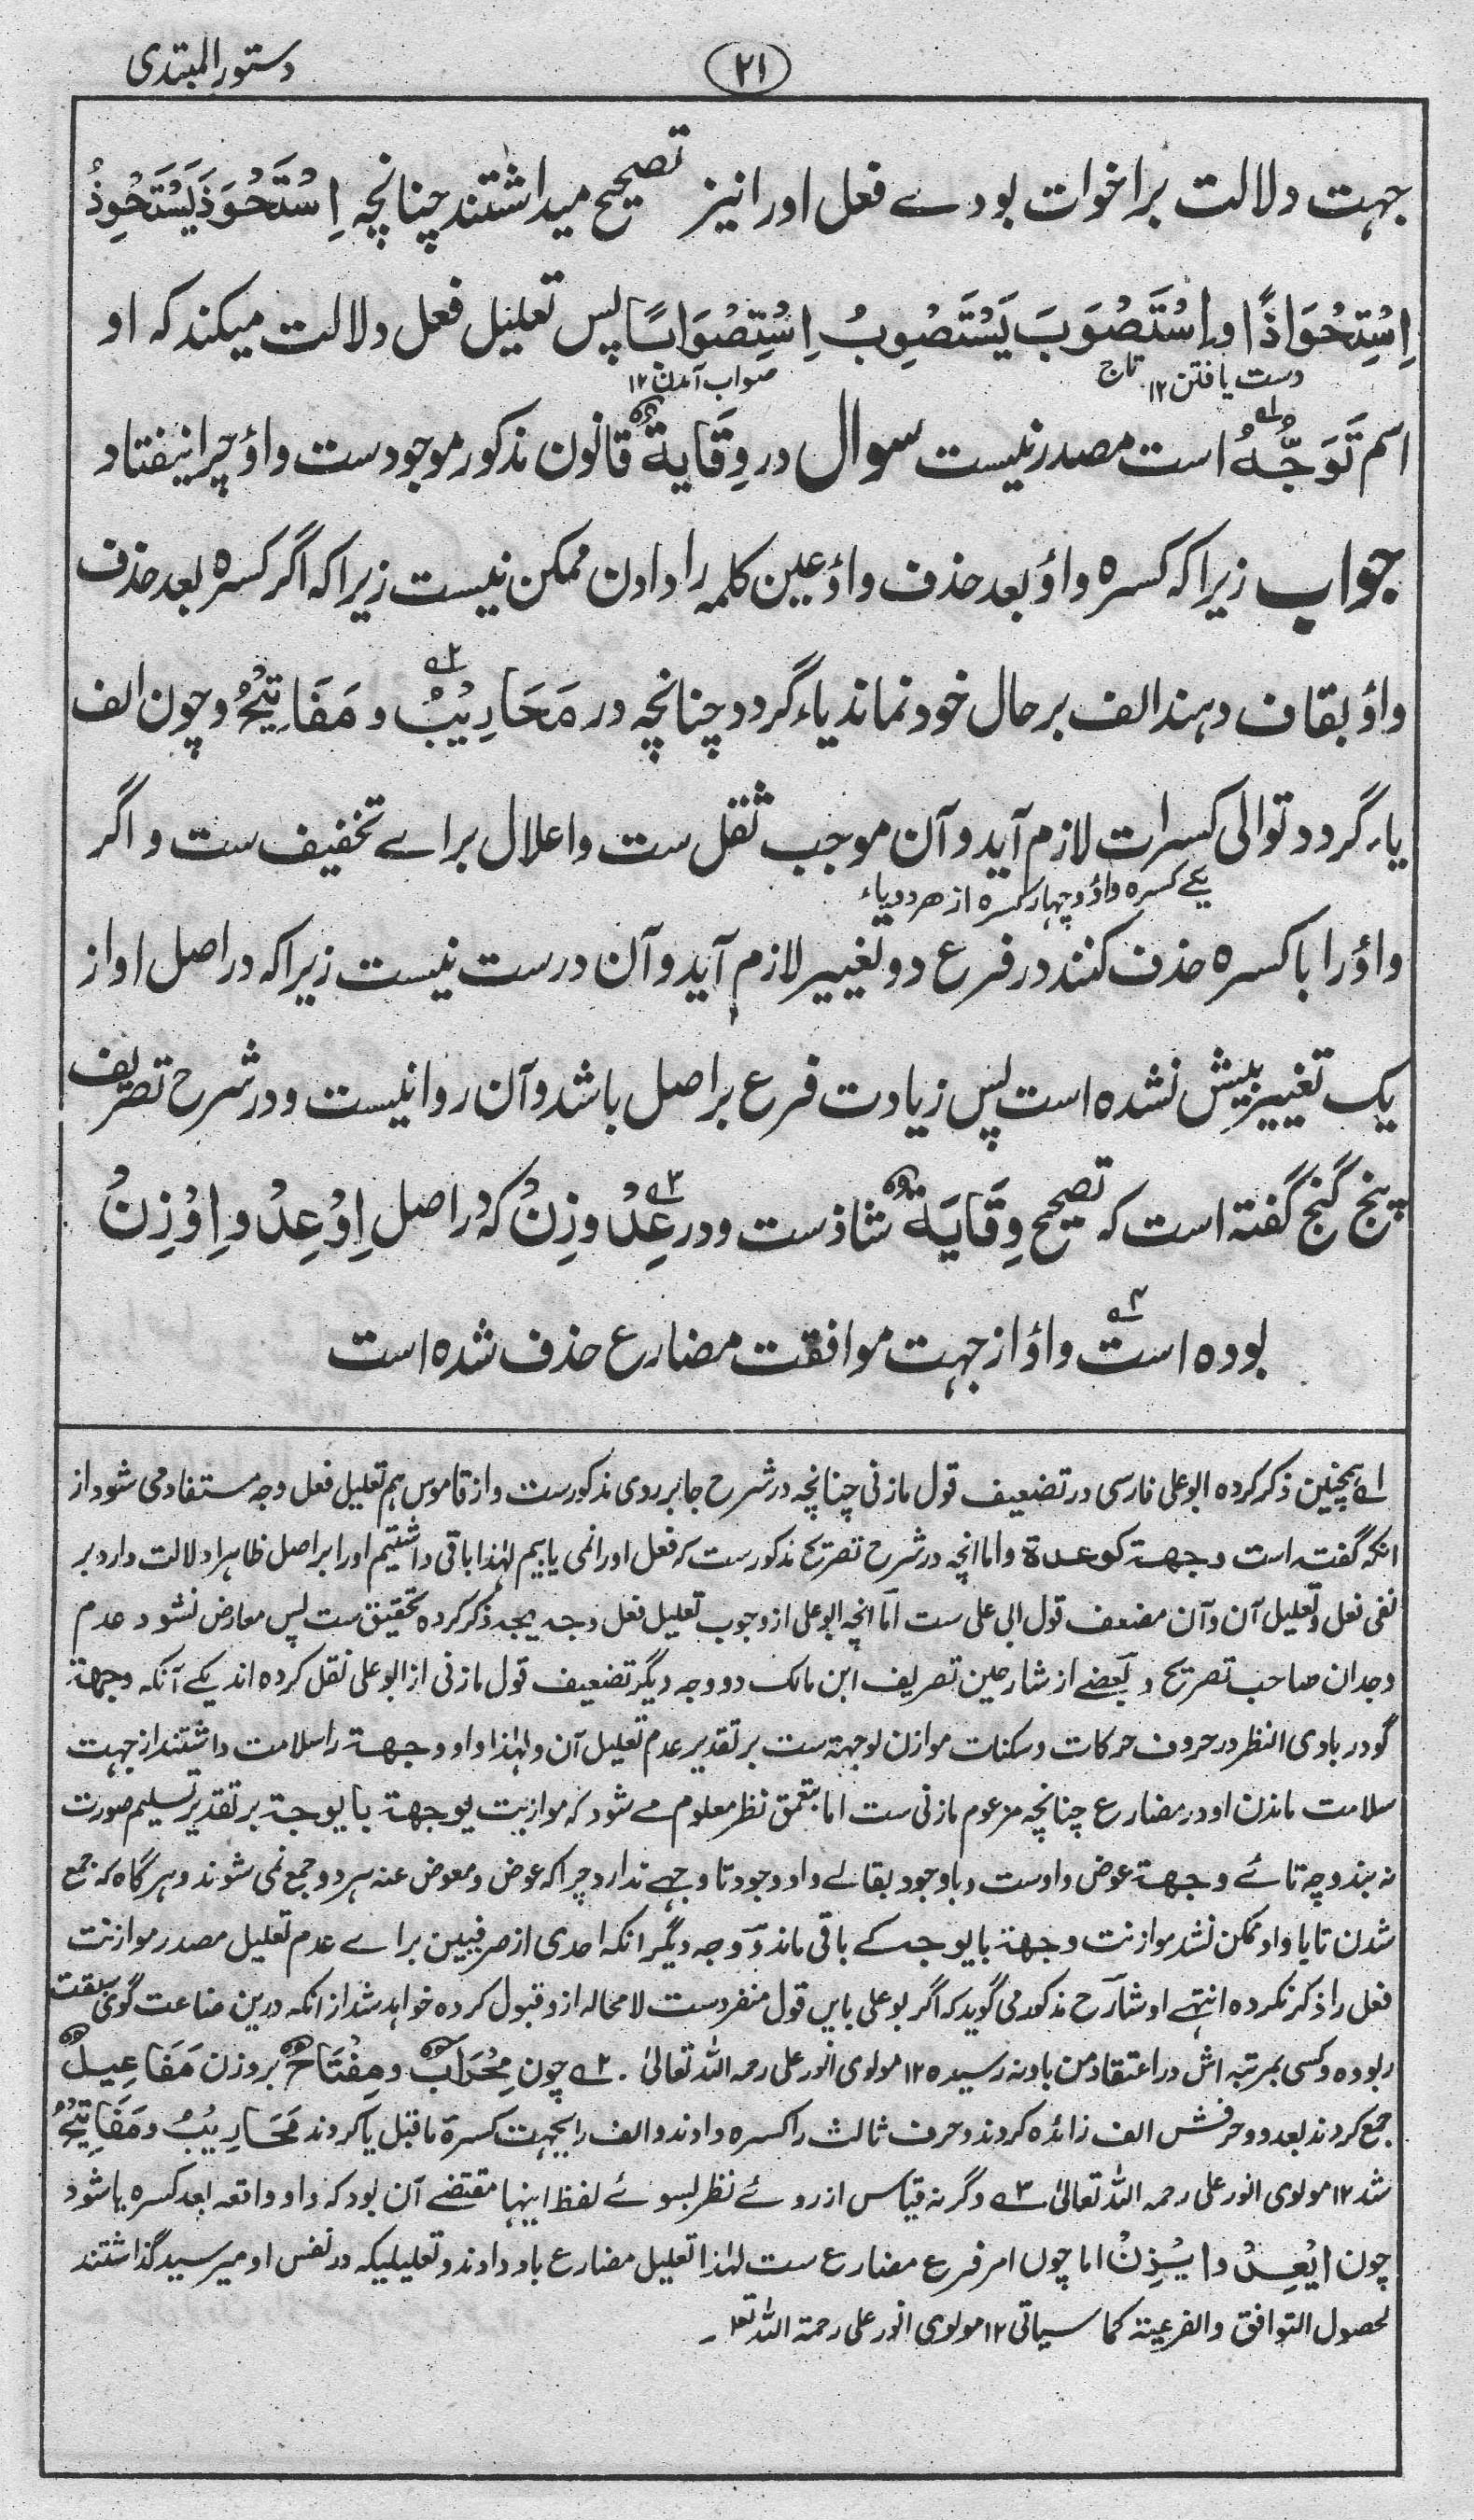 دستور المبتدی
۲۱
جہت دلالت بر اخوات بودے فعل اورا نیز تصحیح میداشتند چنانچہ اِسْتَحْوَذَ یَسْتَحْوِذُ
اِسْتِحْوَاذًا و اِسْتَصْوَبَ یَسْتَصْوِبُ اِسْتِصْوَابًا پس تعلیل فعل دلالت میکند کہ او
دست یافتن ۱۲ تاج
صواب آمدن ۱۲
اسم تَوَجُّهٌ است مصدر نیست سوال در وِقَایةٌ قانون مذکور موجودست واؤ چرا نیفتاد
جواب زیراکہ کسرہ واؤ بعد حذف واؤ عین کلمہ را دادن ممکن نیست زیراکہ اگر کسرہ بعد حذف
واؤ بقاف دہند الف بر حال خود نماند یاء گردد چنانچہ در مَحَارِیْبُ و مَفَاتِیْحُ و چون الف
یاء گردد توالی کسرات لازم آید و آن موجب ثقل ست و اعلال براے تخفیف ست و اگر
یکے کسرہ واؤ و چہار کسرہ از ہر دو یاء
واؤ را با کسرہ حذف کنند در فرع دو تغییر لازم آید و آن درست نیست زیراکہ در اصل او از
یک تغییر بیش نشدہ است پس زیادت فرع بر اصل باشد و آن روا نیست و در شرح تصریف
پنج گنج گفتہ است کہ تصحیح وِقَایَةٌ شاذست و در عِدْ و زِنْ کہ در اصل اِوْعِدْ و اِوْزِنْ
بودہ است واؤ از جہت موافقت مضارع حذف شدہ است
۱؎ ہمچنین ذکر کردہ ابو علی فارسی در تضعیف قول مازنی چنانچہ در شرح جابربردی مذکورست و از قاموس ہم تعلیل فعل وجہ مستفاد می شود از
انکہ گفتہ است وجهة کوعدة و اما انچہ در شرح تصریح مذکورست کہ فعل اورا نمی یابیم لہٰذا باقی داشتیم اورا بر اصل ظاہرا دلالت دارد بر
نفی فعل و تعلیل آن و آن مضعف قول ابی علی ست اما انچہ ابو علی از وجوب تعلیل فعل وجہ یجہ ذکر کردہ تحقیق ست پس معارض نشود عدم
وجدان صاحب تصریح و بعضے از شارحین تصریف ابن مالک دو وجہ دیگر تضعیف قول مازنی از ابو علی نقل کردہ اند یکے آنکہ وجهة
گو در بادی النظر در حروف حرکات و سکنات موازن لوجہتہ ست بر تقدیر عدم تعلیل آن و لہٰذا واو وجهة را سلامت داشتند از جہت
سلامت ماندن او در مضارع چنانچہ مزعوم مازنی ست اما بتعمق نظر معلوم مے شود کہ موازنت یوجهة با یوجة بر تقدیر تسلیم صورت
نہ بندد چہ تائے وجهة عوض واوست و باوجود بقائے واو وجود تا وجہے ندارد چراکہ عوض و معوض عنہ ہر دو جمع نمی شوند و ہر گاہ کہ جمع
شدن تا با واو ممکن نشد موازنت وجهة با یوجہ کے باقی ماند و وجہ دیگر انکہ احدی از صرفیین براے عدم تعلیل مصدر موازنت
فعل را ذکر نکردہ انتہے او شارح مذکور می گوید کہ اگر بو علی بایں قول منفردست لا محالہ ازو قبول کردہ خواہد شد از انکہ درین صناعت گوی سبقت
ربودہ و کسی بمرتبہ اش در اعتقاد من باو نہ رسیدہ ۱۲ مولوی انور علی رحمہ اللہ تعالیٰ ۲؎ چون مِحْرَابٌ و مِفْتَاحٌ بروزن مَفَاعِیلٌ
جمع کردند بعد دو حرفش الف زائدہ کردند و حرف ثالث را کسرہ دادند و الف را بجہت کسرۂ ماقبل یا کردند مَحَارِیْبُ و مَفَاتِیْحُ
شد ۱۲ مولوی انور علی رحمہ اللہ تعالیٰ ۳؎ و گرنہ قیاس از روئے نظر بسوئے لفظ اینہا مقتضے آن بود کہ واو واقعہ بعد کسرہ یا شود
چون ایْعِدْ و ایْزِنْ اما چون امر فرع مضارع ست لہٰذا تعلیل مضارع باو دادند و تعلیلیکہ در نفس او میرسید گذاشتند
لحصول التوافق والفرعیة کما سیاتی ۱۲ مولوی انور علی رحمة اللہ تعہ